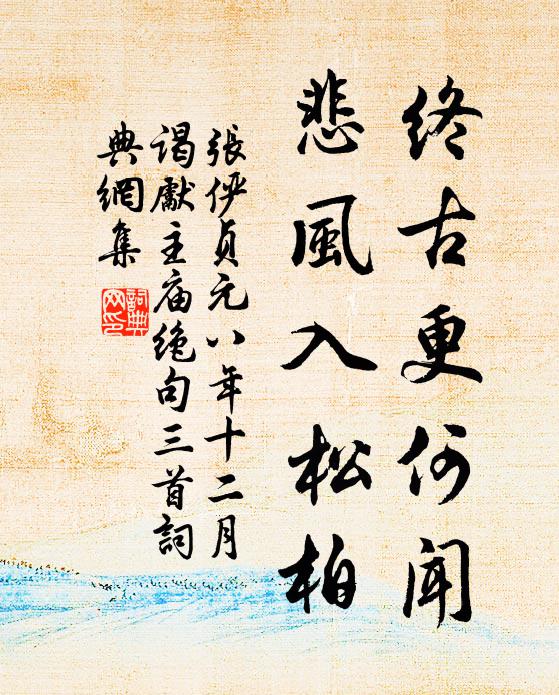 終古更何聞
悲風入松柏
張俨貞元八年十二月
謁獻主庙绝句三首詞
典網集
詞典
网印